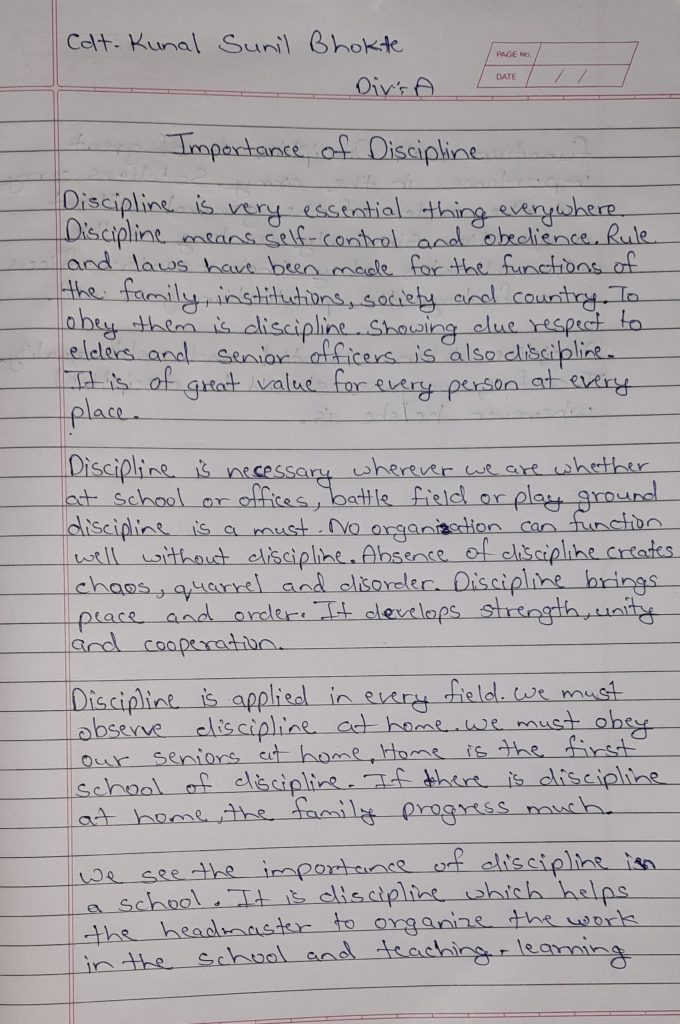 Cdt. Kunal Sunil Bhokte
PAGE No.
DATE / /
Div:- A
Importance of Discipline
Discipline is very essential thing everywhere.
Discipline means self-control and obedience. Rule
and laws have been made for the functions of
the family, institutions, society and country. To
obey them is discipline. Showing due respect to
elders and senior officers is also discipline.
It is of great value for every person at every
place.
Discipline is necessary wherever we are whether
at school or offices, battle field or play ground
discipline is a must. No organization can function
well without discipline. Absence of discipline creates
chaos, quarrel and disorder. Discipline brings
peace and order. It develops strength, unity
and cooperation.
Discipline is applied in every field. We must
observe discipline at home. We must obey
our seniors at home, Home is the first
school of discipline. If there is discipline
at home, the family progress much.
We see the importance of discipline in
a school. It is discipline which helps
the headmaster to organize the work
in the school and teaching-learning